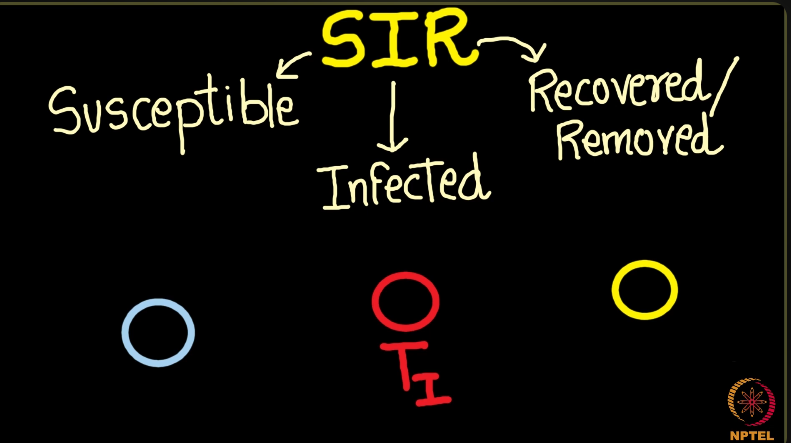 SIR
Susceptible
Infected
Recovered/
Removed
T_I
NPTEL